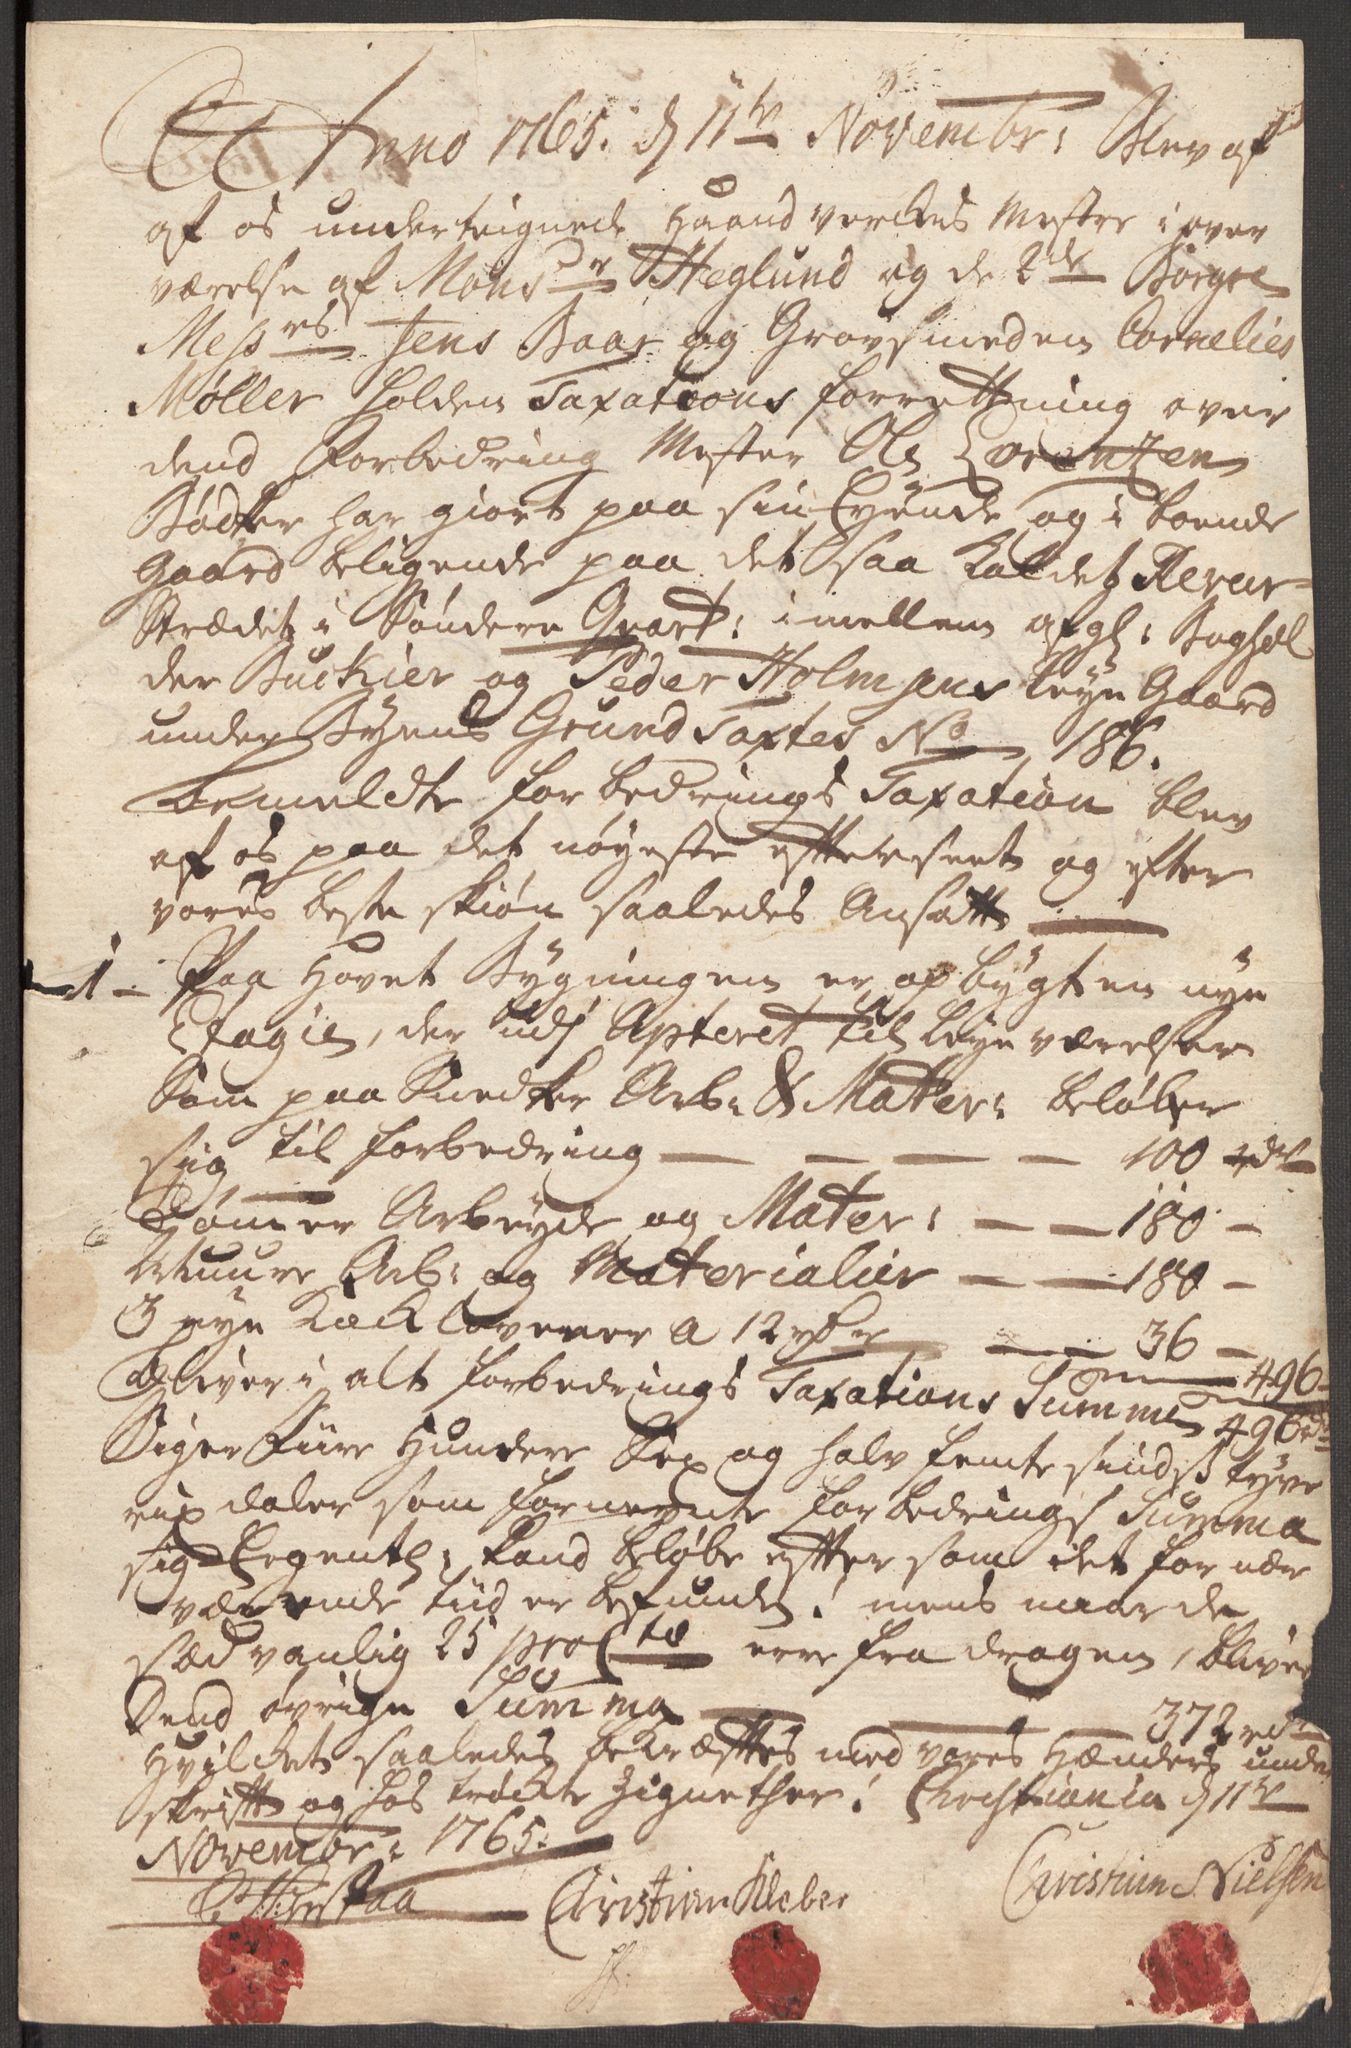 Anno 1765. d 11te Novembr: Blev af
af os underteignede Haandverckes Mestre i over
værelse af Monsr Heglund og de 2de Borgre
Messrs Jens Baar og Grovsmeden Cornelies
Møller holden Taxations forrettning over
dend Forbedring Mester Ole Lorentzen
Bödker har giort paa sin Eyende og i boende
Gaard beligende paa det saa kaldet Rever-
Strædet i Söndere Qvart: imellem afgl: Boghol
der Buckier og Peder Holmsens leye Gaard
under Byens Grund Taxtes No 186.
bemeldte forbedrings Taxation blev
af os paa det nöyeste efterseet og efter
vores beste skiön saaledes Ansatt
1- Paa Hovet Bygningen er opbygt en nye
Etagie, der udj Apteret til leye værelser
Som paa Snedker Arb: & Mater: beløber
sig til forbedring — — — — 100 rdr
Tömer Arbeyde og Mater: — — 180 -
Muure Arb: og Materialier — — 180 -
3 nye Kackloverer a 12 rdr — — 36 -
496-
bliver i alt forbedrings Taxations Summa 496rd
Siger Fiire Hundere Sex og halv femte sinds tyve
rix daler som fornevnte forbedrings Summa
sig Egentl: kand beløbe efter som det for nær
værende tiid er befunden! mens naar de
sædvanlig 25 pro Cto erre fra dragen, bliver
Dend övrige Summa — — — 372 rdr
Hvilcket saaledes bekræfttes med vores Hænders under
skrifft og hos tröckte Zignether! Christiania d 11te
Novembr: 1765.
Christian Kleber Christian Nielsen